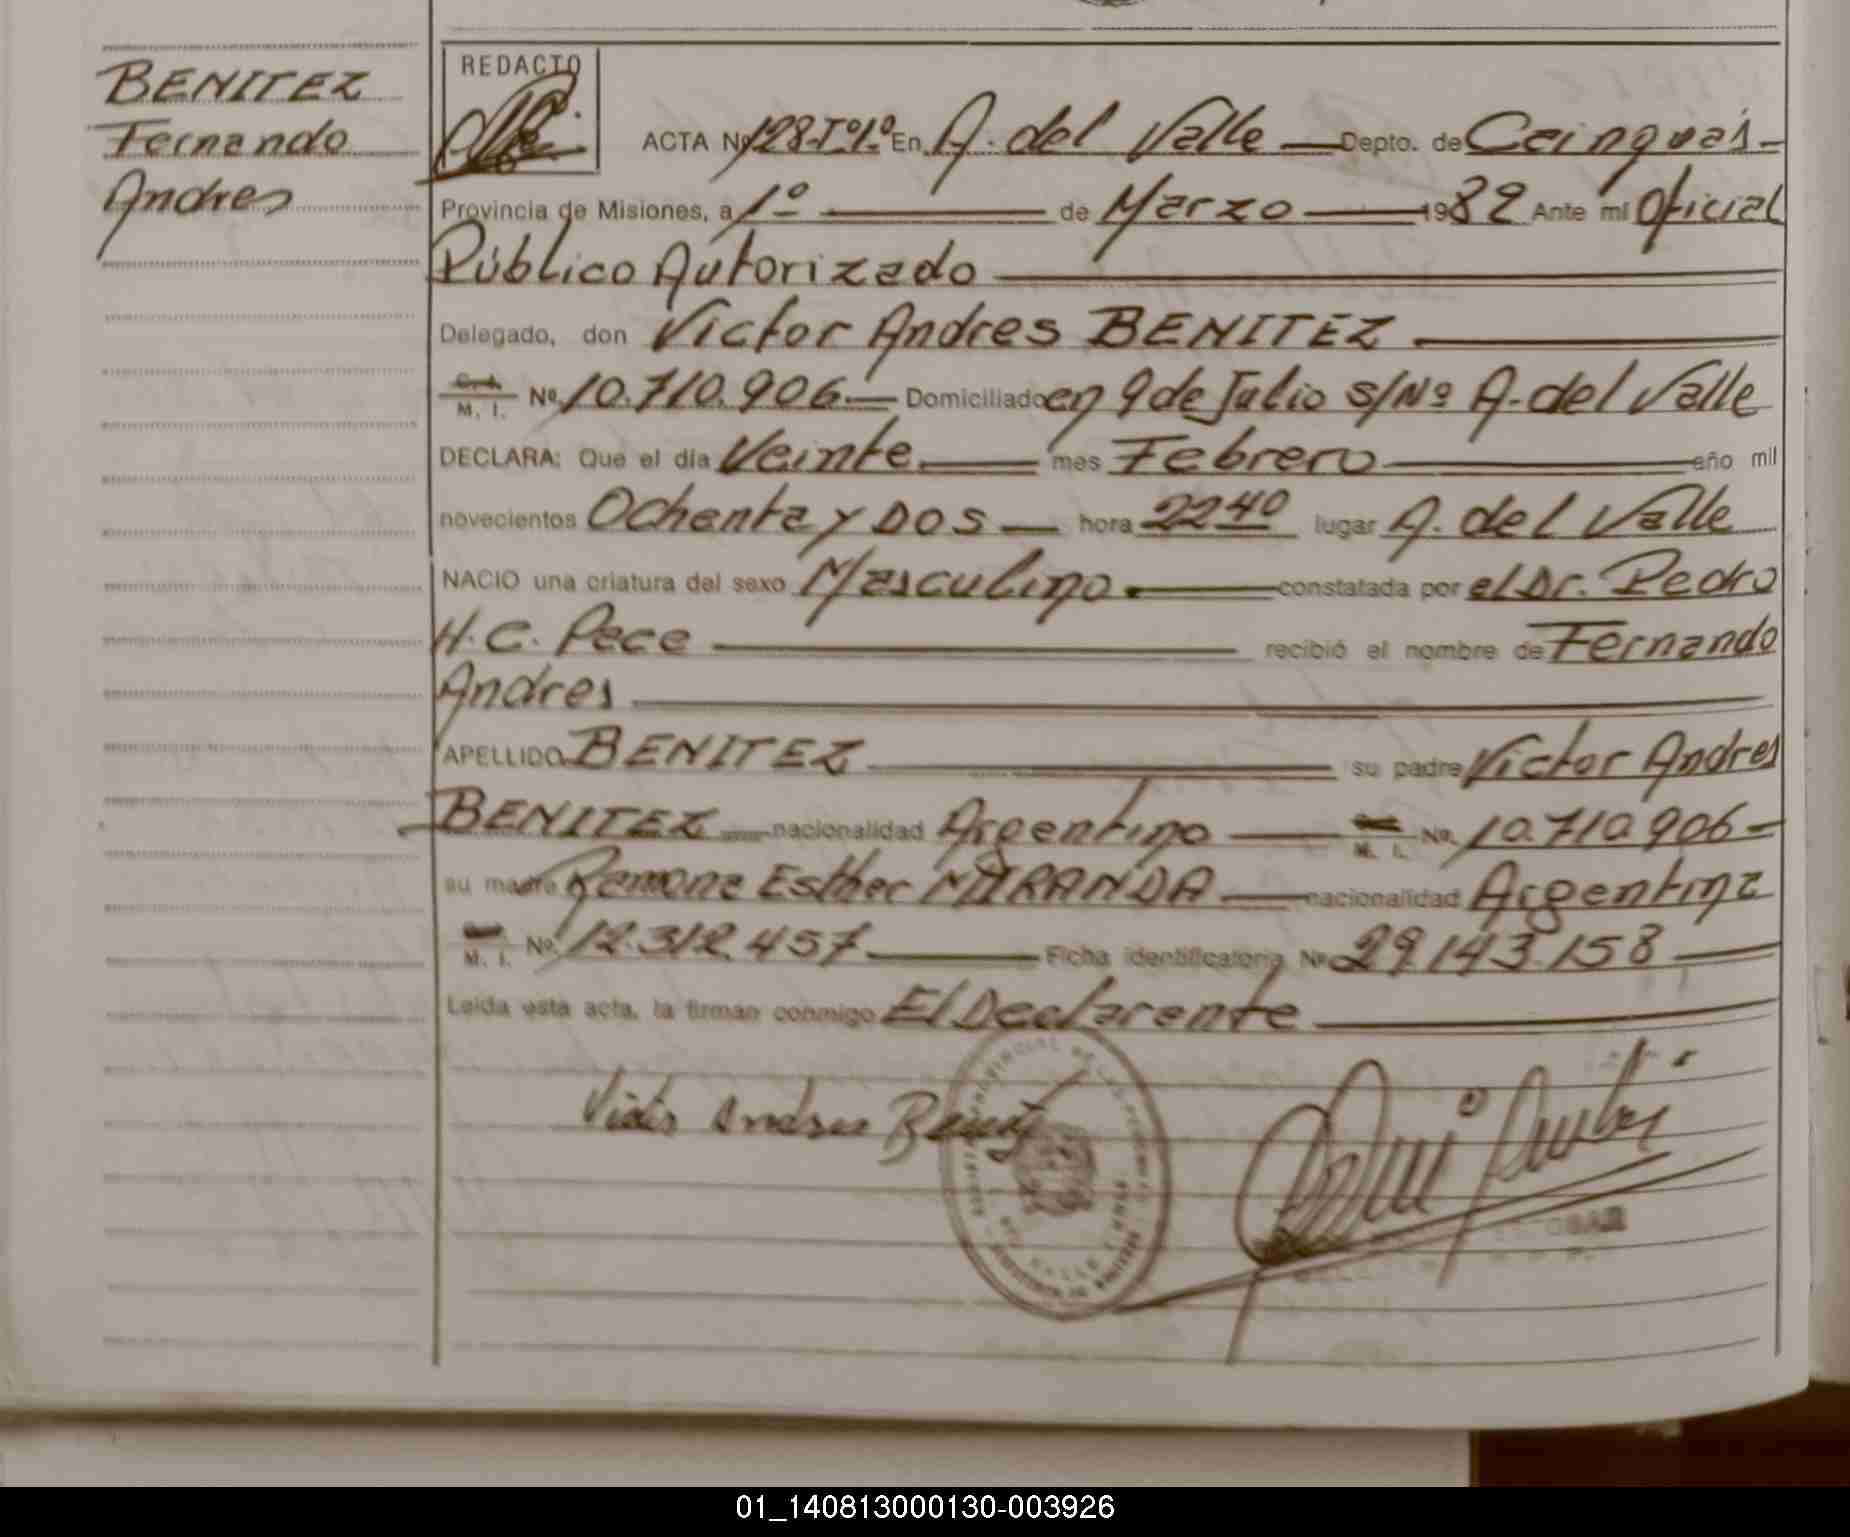 BENITEZ
Fernando
Andres
REDACTO
ACTA Nº 128-Tº1º En A. del Valle — Depto. de Cainguas -
Provincia de Misiones, a 1º — de Marzo — 1982 Ante mi Oficial
Público Autorizado —
Delegado, don Victor Andres BENITEZ —
M. I. Nº 10.710.906 — Domiciliado en 9 de Julio s/Nº A. del Valle
DECLARA: Que el día Veinte — mes Febrero — año mil
novecientos Ochenta y DOS — hora 22 40 lugar A. del Valle
NACIO una criatura del sexo Masculino — constatada por el Dr. Pedro
H. C. Pece — recibió el nombre de Fernando
Andres —
APELLIDO BENITEZ — su padre Victor Andres
BENITEZ — nacionalidad Argentino — M. I. Nº 10.710.906 —
su madre Ramona Esther MIRANDA — nacionalidad Argentina
M. I. Nº 12.312.457 — Ficha identificatoria Nº 29.143.158 —
Leída esta acta, la firman conmigo El Declarante —
Victor Andres Benitez
01_140813000130-003926